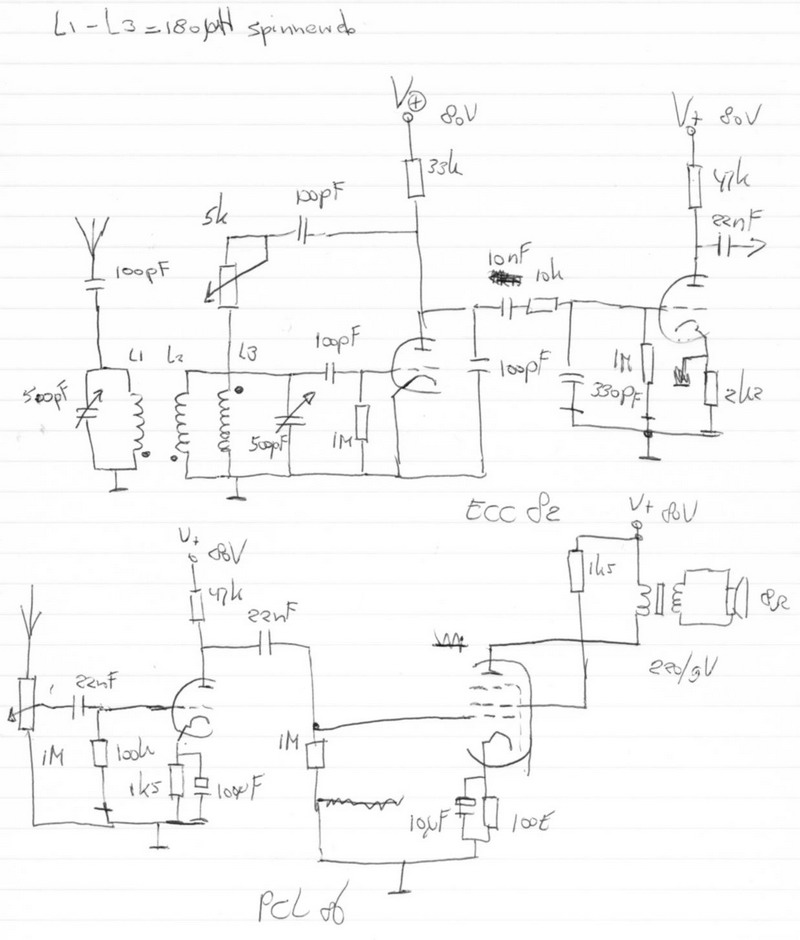 L1-L3=180µH spinneweb
V⊕ 80V
V+ 80V
33k
47k
100pF
5k
22nF
100pF
10nF
10k
L1 L2 L3
100pF
500pF
100pF
1M
330pF
2k2
500pF
1M
ECC 82
V+ 80V
V+
80V
47k
1k5
22nF
8Ω
220/9V
22nF
1M
100k
1M
1k5
100µF
10µF
100E
PCL 86